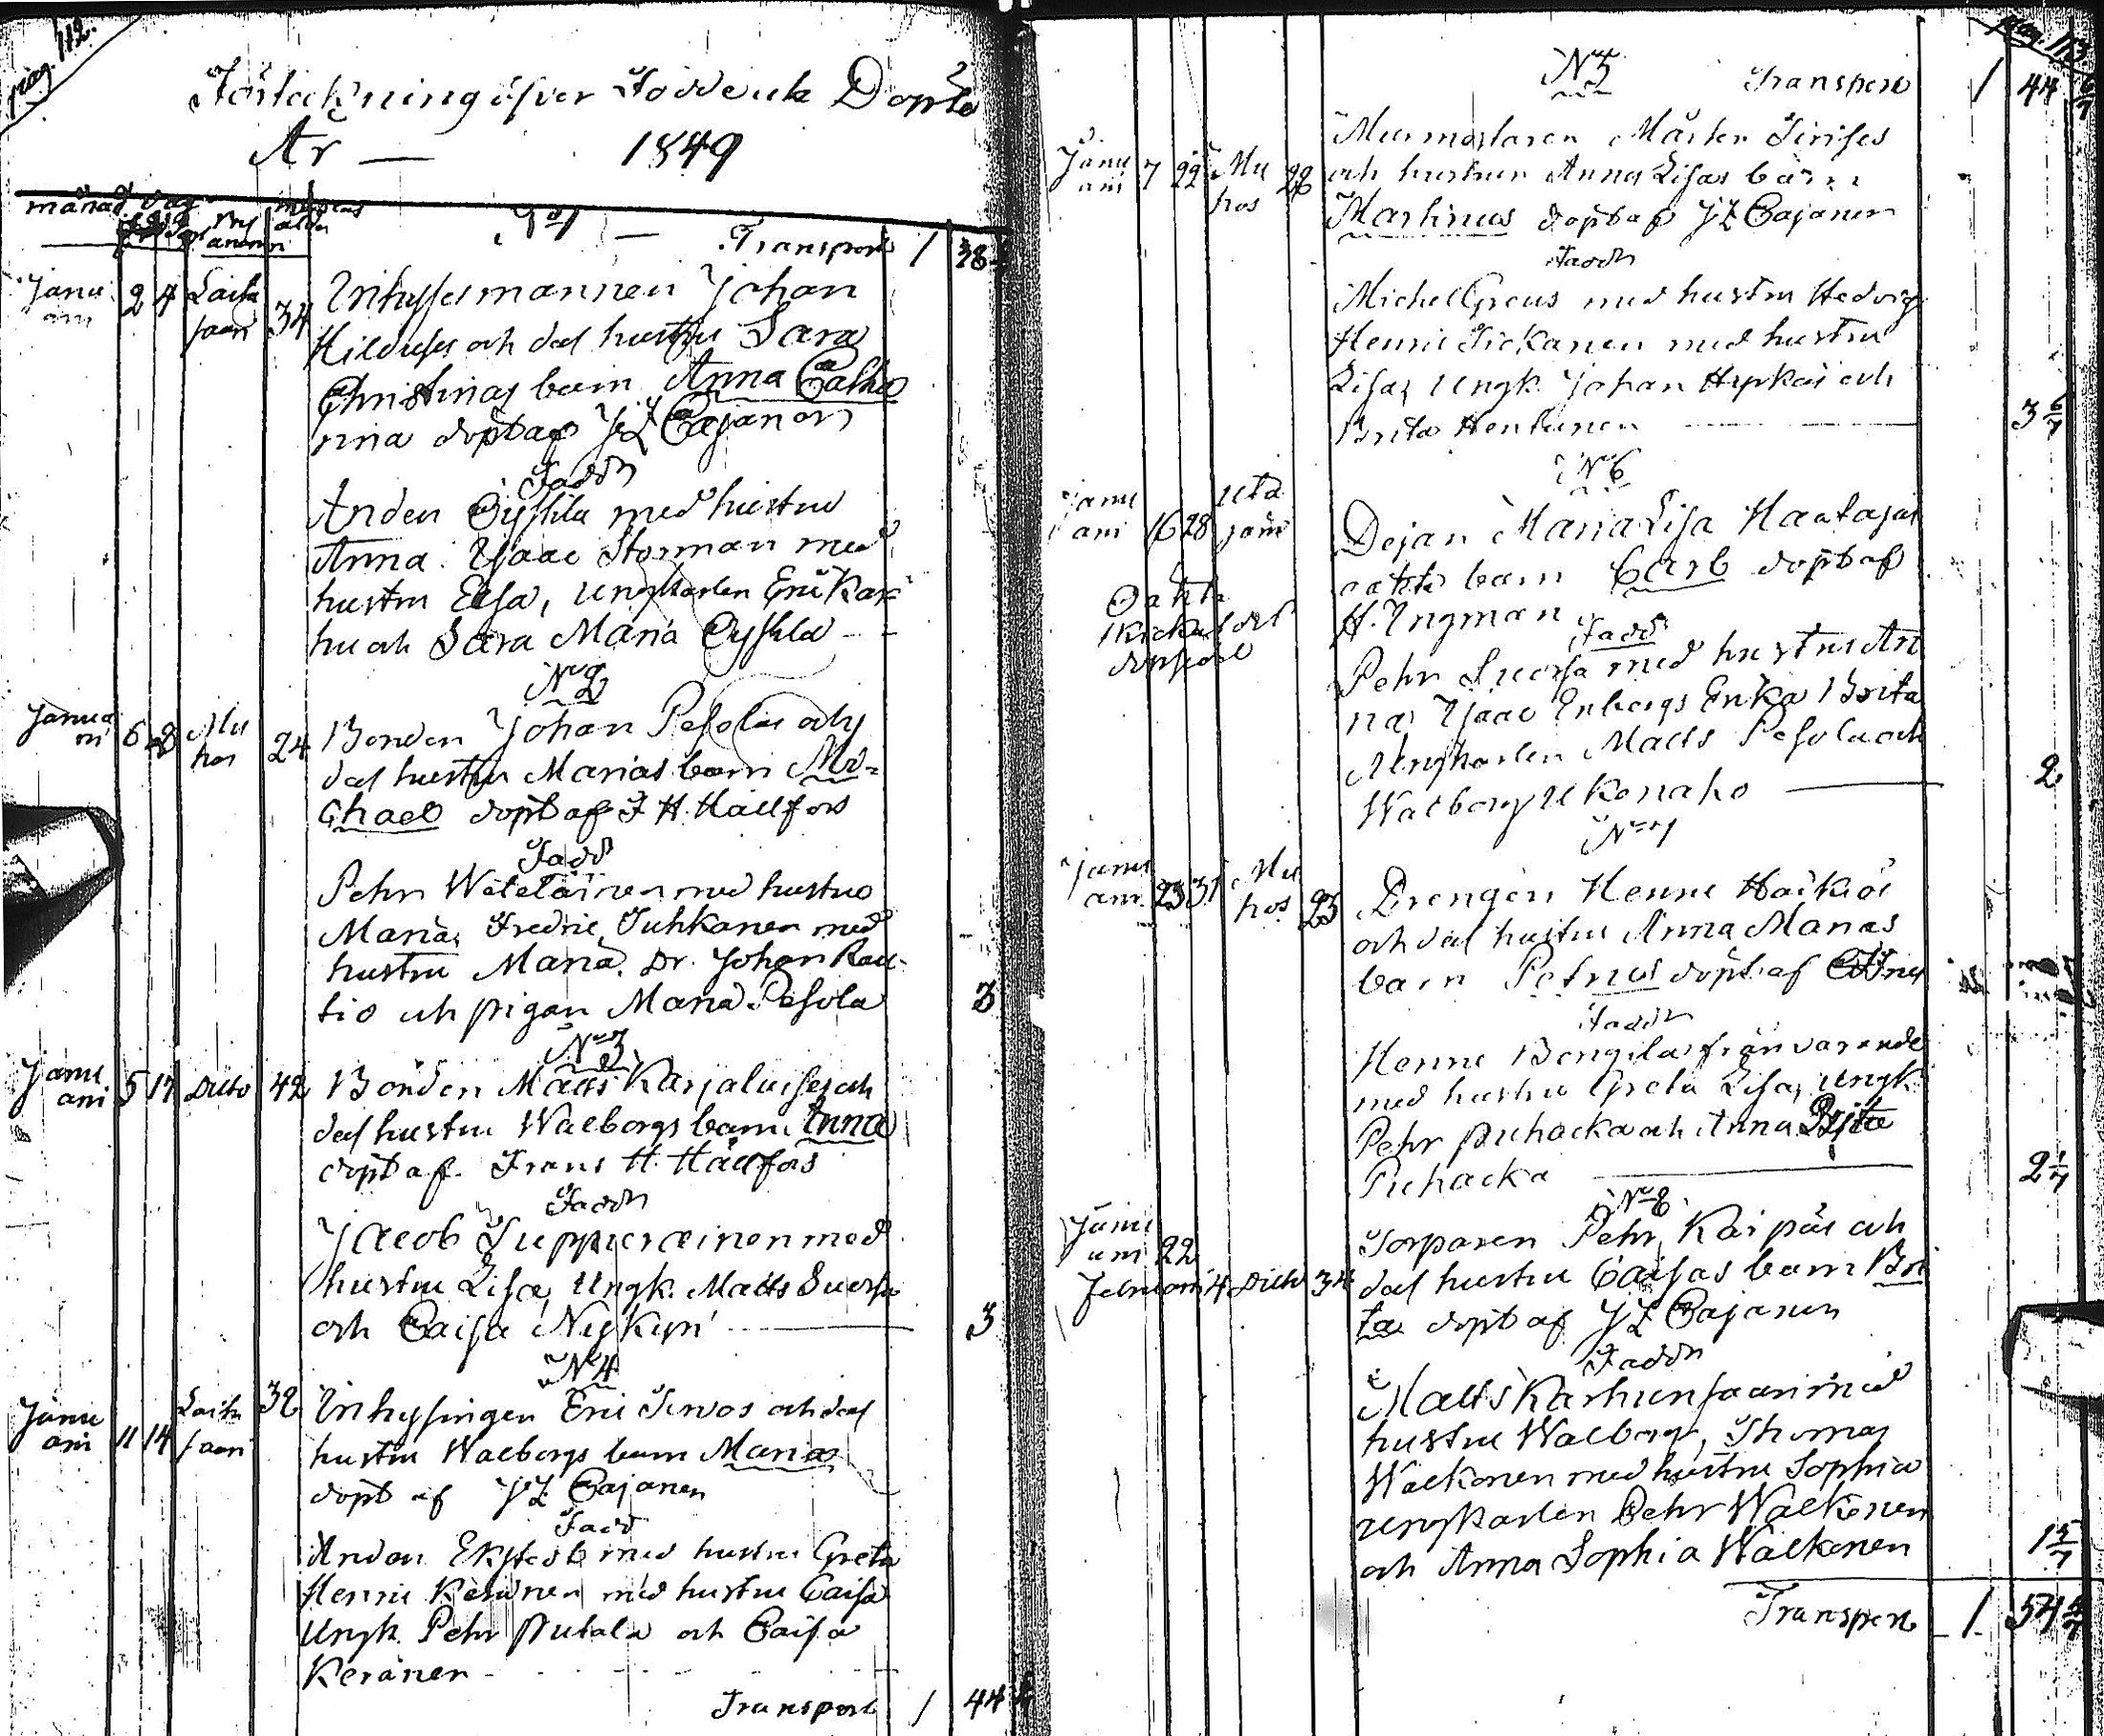 pag. 112.
Förteckning öfver Födde och Döpte
År — 1849
månad dag
ålder
N 1 — Transport 1 38
Janu
ari 2 4 Laita
saari 34
Inhysesmannen Johan
och des hustru Sara
Christinas barn Anna Catha
rina döpt af J Z Cajanen
Fadd
Anders Cyskilä med hustru
Anna. Isaac Storman med
hustru Elsa, Ungkarlen Eric Kar
hu och Sara Maria Cyskilä
N 2
Janua
ri 6 8 Mu
hos 24
Bonden Johan Pesolas och
des hustru Marias barn Mi-
chael döpt af F H Hällfors
Fadd
Pehr Wätäläinen med hustru
Maria, Fredric Juhkanen med
hustru Maria. Dr. Johan Rau-
tio och pigan Maria Pesola 3
N 3
Janu
ari 5 17 Ditto 42
Bonden Matts Karjaluises och
des hustru Walborgs barn Anna
döpt af Frans H. Hällfors
Fadd
Jacob Suppurainen med
hustru Lisa, Ungk. Matts Suorsa
och Caisa Nykyri 3
N 4
Janu
ari 11 14 Laita
saari 32
Inhysingen Eric Servos och des
hustru Walborgs barn Maria
döpt af J Z Cajanen
Fadd
Anders med hustru Greta
Henric Keränen med hustru Caisa
Ungk. Pehr Putala och Caisa
Keränen
Transport 1 44
pag. 113
N 5 Transport 1 44 6/7
Janu
ari 7 22 Mu
hos 28
Murmästaren Mårten
och hustrun Anna Lisas barn
Martinus döpt af J Z Cajanen
Fadd
Michel Greus med hustru Hedvig
Henric Tickanen med hustru
Lisa, Ungk. Johan Hyrkäs och
Brita Henturinen 3 6/7
N 6
Janu
ari 16 28 Uta
järvi
Oäkta
döpt
Dejan Maria Lisa Haatajas
oäkta barn Carl döpt af
H. Ingman
Fadd
Pehr Suorsa med hustru An
na, Isaac Enbergs Enka Brita
Ungkarlen Matts Pesola och
Walborg Ukonaho 2
N 7
Janu
ari 23 31 Mu
hos 25
Drengen Henric
och des hustru Anna Marias
barn Petrus döpt af
Fadd
Henric Bengila frånvarande
med hustru Greta Lisa, Ungk.
Pehr Puhacka och Anna Brita
Puhacka 2 1/7
N 8
Janu
ari 22
Februari 4 Ditto 34
Torparen Pehr Karpäs och
des hustru Caisas barn Bri
ta döpt af J Z Cajanen
Fadd
Matts Karhunsaari med
hustru Walborg, Thomas
Walkonen med hustru Sophia
Ungkarlen Pehr Walkonen
och Anna Sophia Walkonen 1 5/7
Transport 1 54 4/7